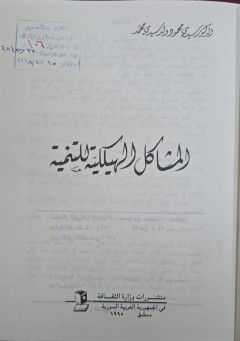 الدكتور سيدي محمود ولد سيدي محمد
المشاكل الهيكلية للتنمية
منشورات وزارة الثقافة
في الجمهورية العربية السورية
دمشق ١٩٩٥